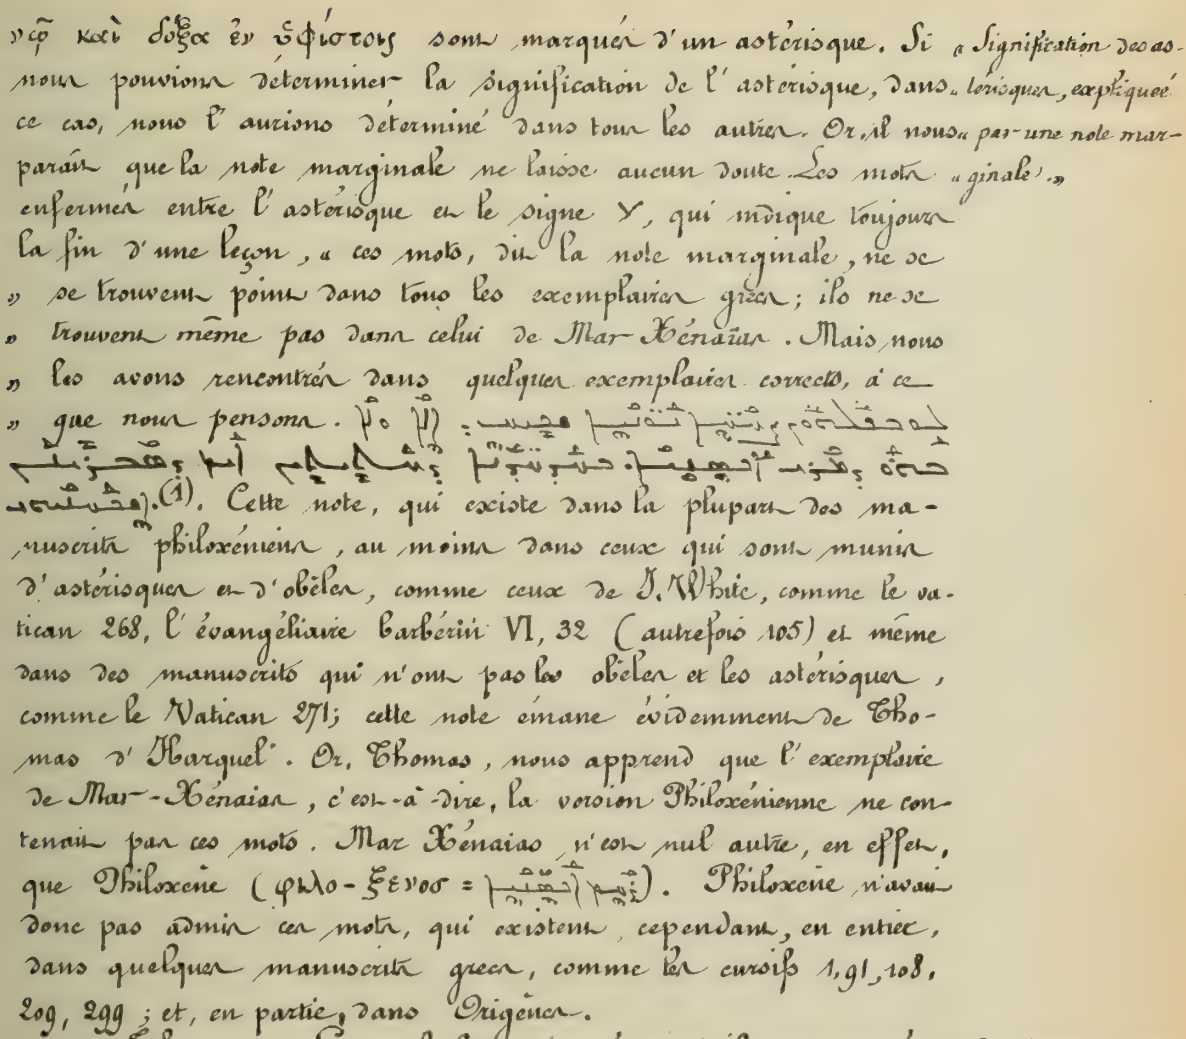 νῳ̃ καὶ δόξα ἐν ὑψίστοις sont marqués d'un astérisque. Si
nous pouvions déterminer la signification de l'astérisque, dans
ce cas, nous l'aurions déterminé dans tous les autres. Or, il nous
paraît que la note marginale ne laisse aucun doute. Les mots
enfermés entre l'astérisque et le signe Y, qui indique toujours
la fin d'une leçon, « ces mots, dit la note marginale, ne se
» se trouvent point dans tous les exemplaires grecs ; ils ne se
» trouvent même pas dans celui de Mar Xénaïas. Mais, nous
» les avons rencontrés dans quelques exemplaires corrects, à ce
» que nous pensons.
(1). Cette note, qui existe dans la plupart des ma-
nuscrits philoxéniens, au moins dans ceux qui sont munis
d'astérisques et d'obèles, comme ceux de J. White, comme le va-
tican 268, l'évangéliaire barbérin VI, 32 (autrefois 105) et même
dans des manuscrits qui n'ont pas les obèles et les astérisques,
comme le Vatican 271; cette note émane évidemment de Tho-
mas d'Harquel. Or, Thomas, nous apprend que l'exemplaire
de Mar-Xénaias, c'est-à-dire, la version Philoxénienne ne con-
tenait pas ces mots. Mar Xénaias n'est nul autre, en effet,
que Philoxène (φιλο-ξενοσ = ). Philoxène n'avait
donc pas admis ces mots, qui existent, cependant, en entier,
dans quelques manuscrits grecs, comme les cursifs 1, 91, 108,
209, 299 ; et, en partie, dans Origènes.
« Signification des as-
« térisques, expliquée
« par une note mar-
« ginale. »